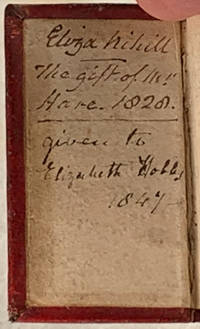 Eliza Nihill
The gift of Mr
Hare. 1828.
given to
Elizabeth Hobbs
1847